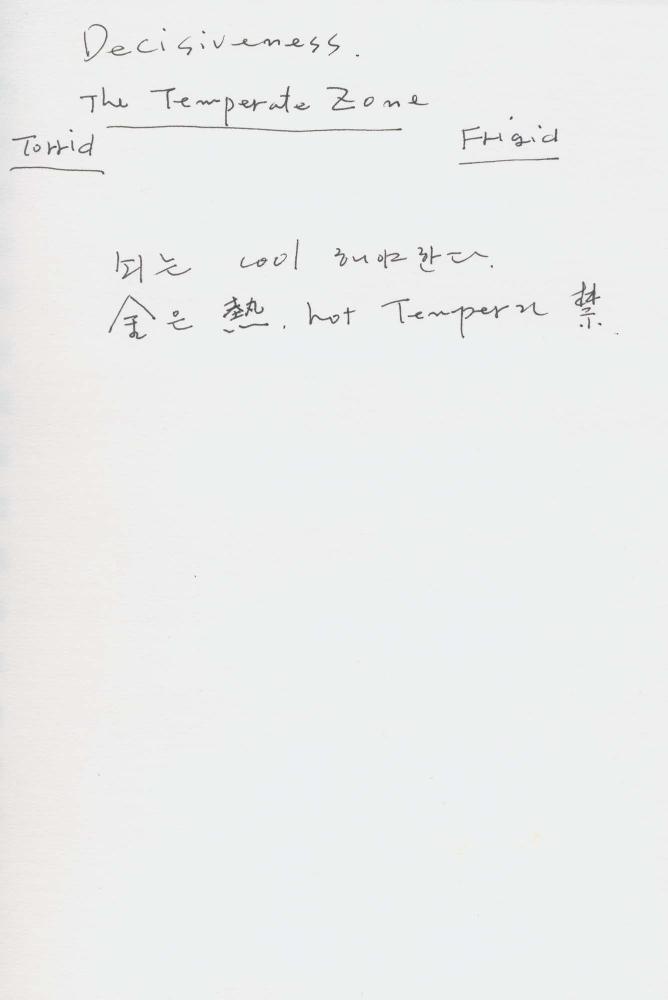 Decisiveness.
The Temperate Zone
Torrid Frigid
뇌는 cool 해야한다.
金은 熱. hot Temper 禁.